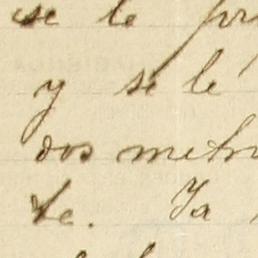 se le
y se le
dos metr
te. Ya